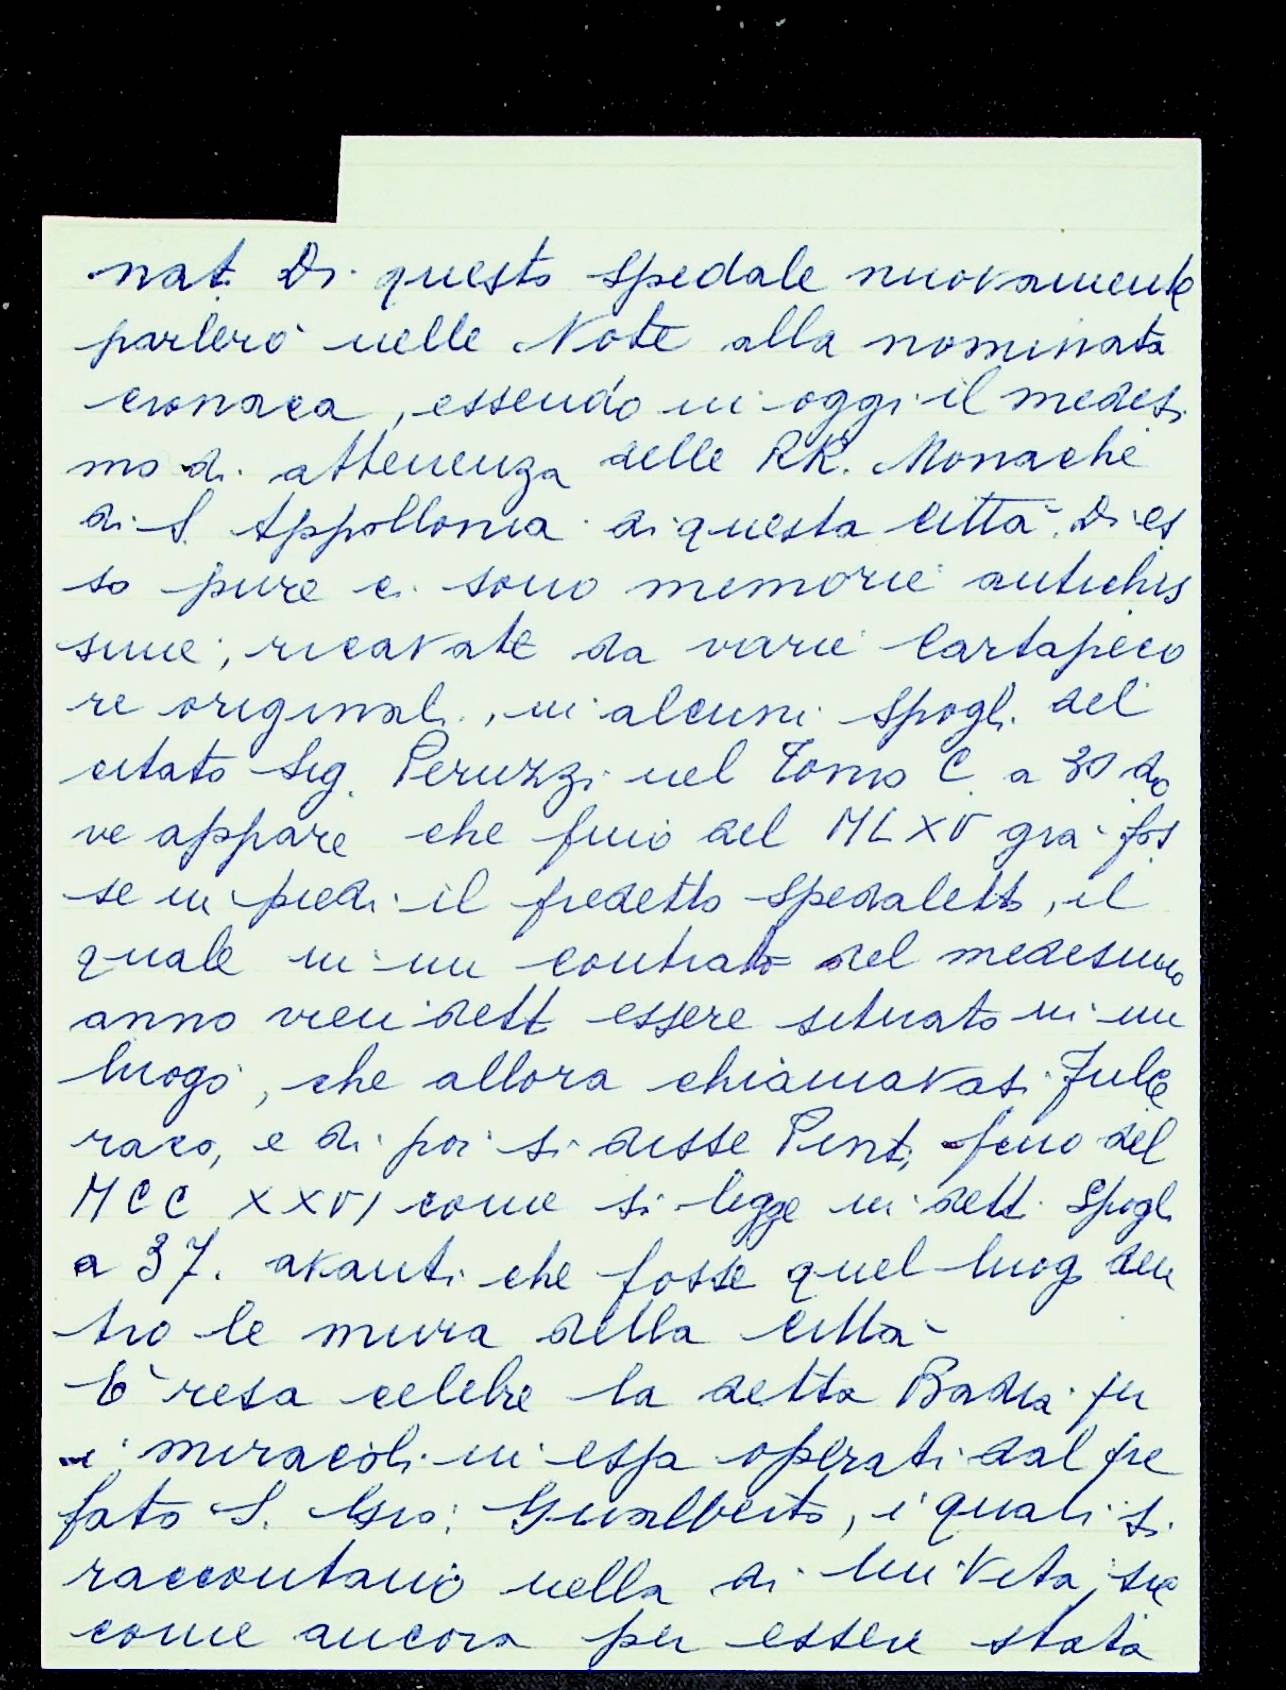 nat. Di questo spedale nuovamente
parlerò nelle Note alla nominata
cronaca, essendo in oggi il medesi
mo di attenenza delle RR. Monache
di S. Appollonia di questa città. Di es
so pure ci sono memorie antichis
sime, ricavate da varie Cartapeco
re originali, in alcuni spogli del
citato Sig. Peruzzi nel Tomo C. a 30 do
ve appare che fino del MLXV già fos
se in piedi il predetto spedaletto, il
quale in un contratto del medesimo
anno vien dett essere situato in un
luogo, che allora chiamavasi
raco, e di poi si disse Pinti, fino del
MCCXXVI come si legge in detti Spogli
a 37. avanti che fosse quel luogo den
tro le mura della città
È resa celebre la detta Badia per
i miracoli in essa operati dal pre
fato S. Gio: Gualberto, i quali si
raccontano nella di lui Vita, sic
come ancora per essere stata